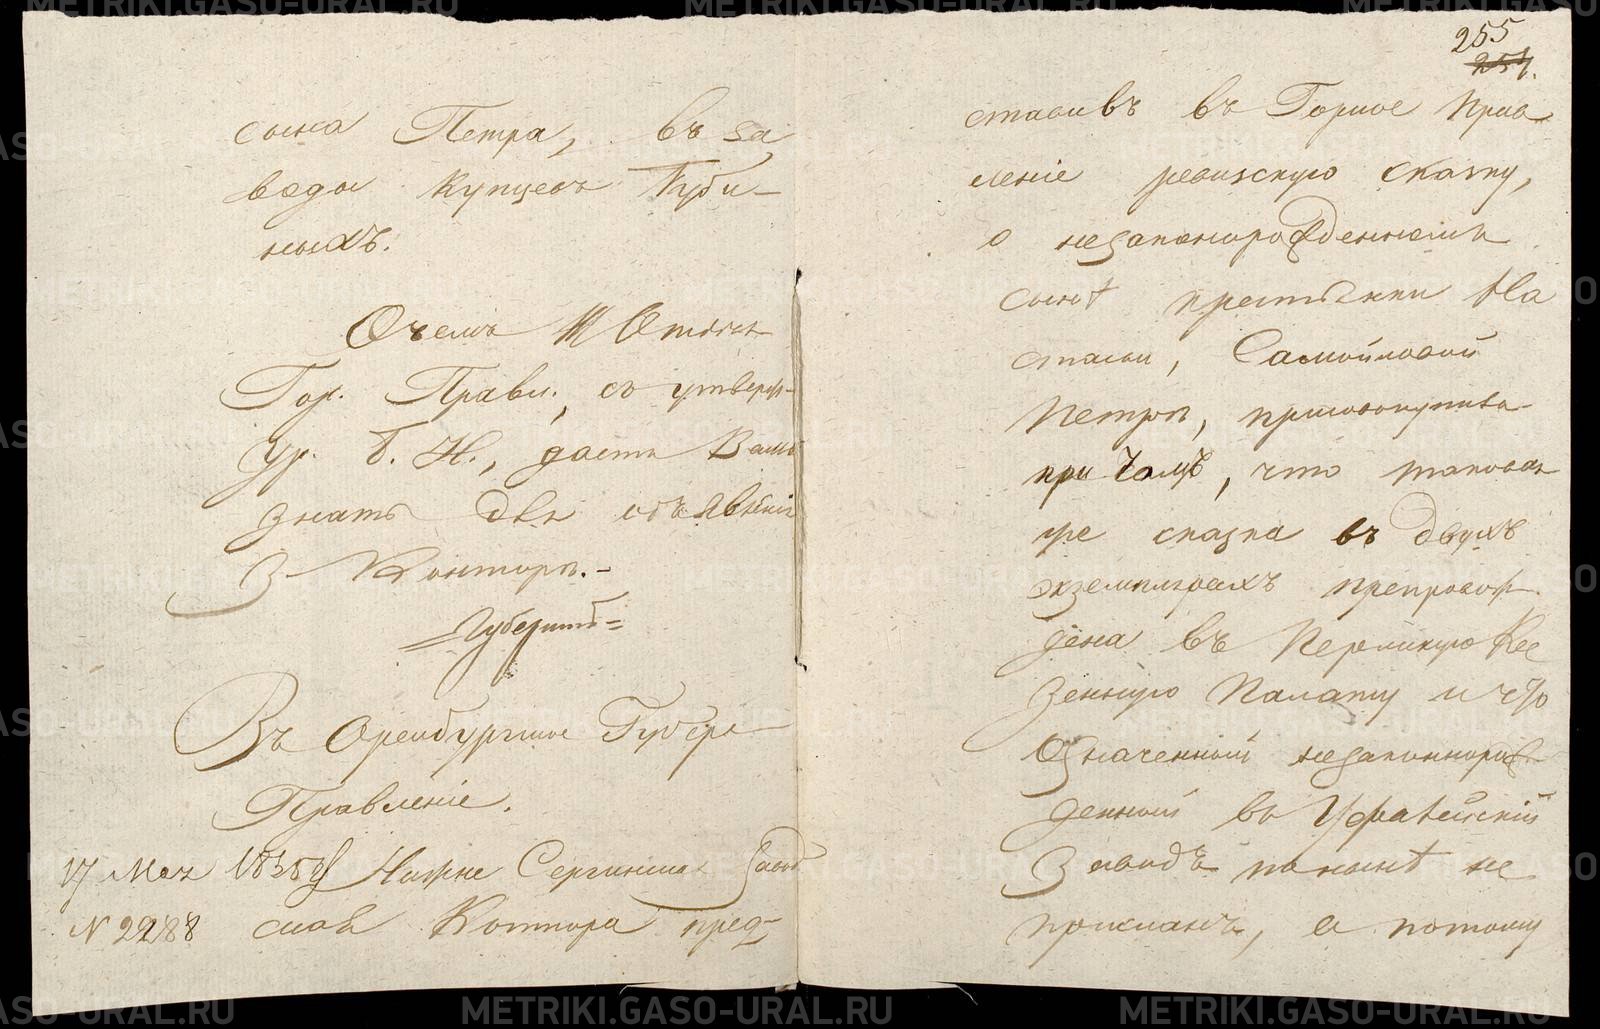 сына Петра, въ за
воды купцовъ Губи-
ныхъ.
О чемъ III Отдѣл.
Гор. Правл., съ утверж-
Ур. Б. Н., даетъ Вамъ
знать для объявленiя
З. Конторѣ.
Губернатъ
Въ Оренбургское Губерн
Правленiе.
17 Мая 1835 Нижне Сергинская Завод
№ 2288 ская Контора пред-
255
254.
ставивъ въ Горное Прав
ленiе ревизскую сказку,
о незаконорожденномъ
сынѣ крестьянки На
стасьи, Самойловой
Петрѣ, присовокупила
при чемъ, что таковая
же сказка въ двухъ
экземплярахъ препровож-
дена въ Пермскую Ка
зенную Палату и что
Означенный незаконнорож-
денный въ Уфалейскiй
Заводъ по нынѣ не
присланъ, а потому
METRIKI.GASO-URAL.RU